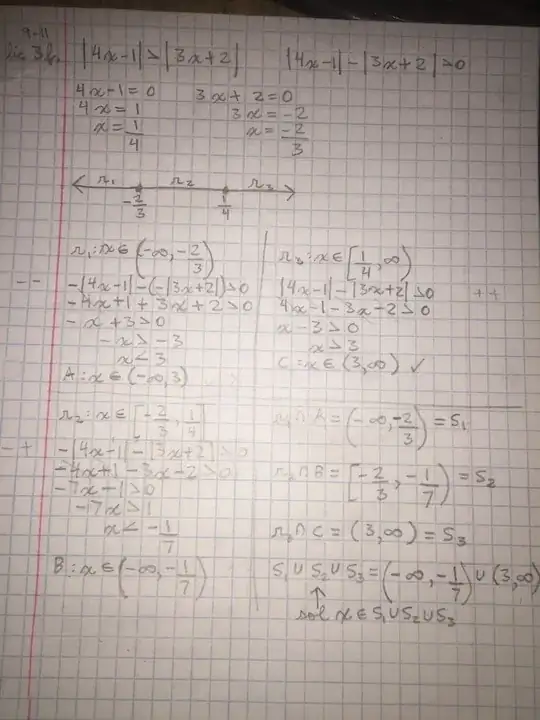 9-11
3b. |4x-1|>|3x+2| |4x-1|-|3x+2|>0
4x-1=0 3x+2=0
4x=1 3x=-2
x=1/4 x=-2/3
r₁ r₂ r₃
-2/3 1/4
r₁:x∈(-∞,-2/3)
-- -|4x-1|-(-|3x+2|)>0
-4x+1+3x+2>0
-x+3>0
-x>-3
x<3
A:x∈(-∞,3)
r₃:x∈[1/4,∞)
|4x-1|-|3x+2|>0 ++
4x-1-3x-2>0
x-3>0
x>3
C=x∈(3,∞) ✓
r₂:x∈[-2/3,1/4]
-+ -|4x-1|-|3x+2|>0
-4x+1-3x-2>0
-7x-1>0
-17x>1
x<-1/7
B:x∈(-∞,-1/7)
r₁∩A=(-∞,-2/3)=S₁
r₂∩B=[-2/3,-1/7)=S₂
r₃∩C=(3,∞)=S₃
S₁∪S₂∪S₃=(-∞,-1/7)∪(3,∞)
↑
sol x∈S₁∪S₂∪S₃